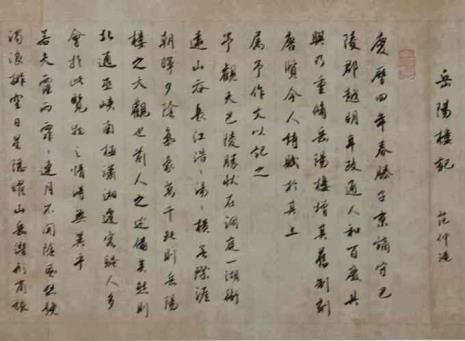 岳陽樓記 范仲淹
慶曆四年春滕子京謫守巴
陵郡越明年政通人和百廢具
興乃重脩岳陽樓增其舊制刻
唐賢今人詩賦於其上
屬予作文以記之
予觀夫巴陵勝狀在洞庭一湖銜
遠山吞長江浩〻湯〻橫無際涯
朝暉夕陰氣象萬千此則岳陽
樓之大觀也前人之述備矣然則
北通巫峽南極瀟湘遷客騷人多
會於此覽物之情得無異乎
若夫霪雨霏〻連月不開陰風怒號
濁浪排空日星隱曜山岳潛形商旅